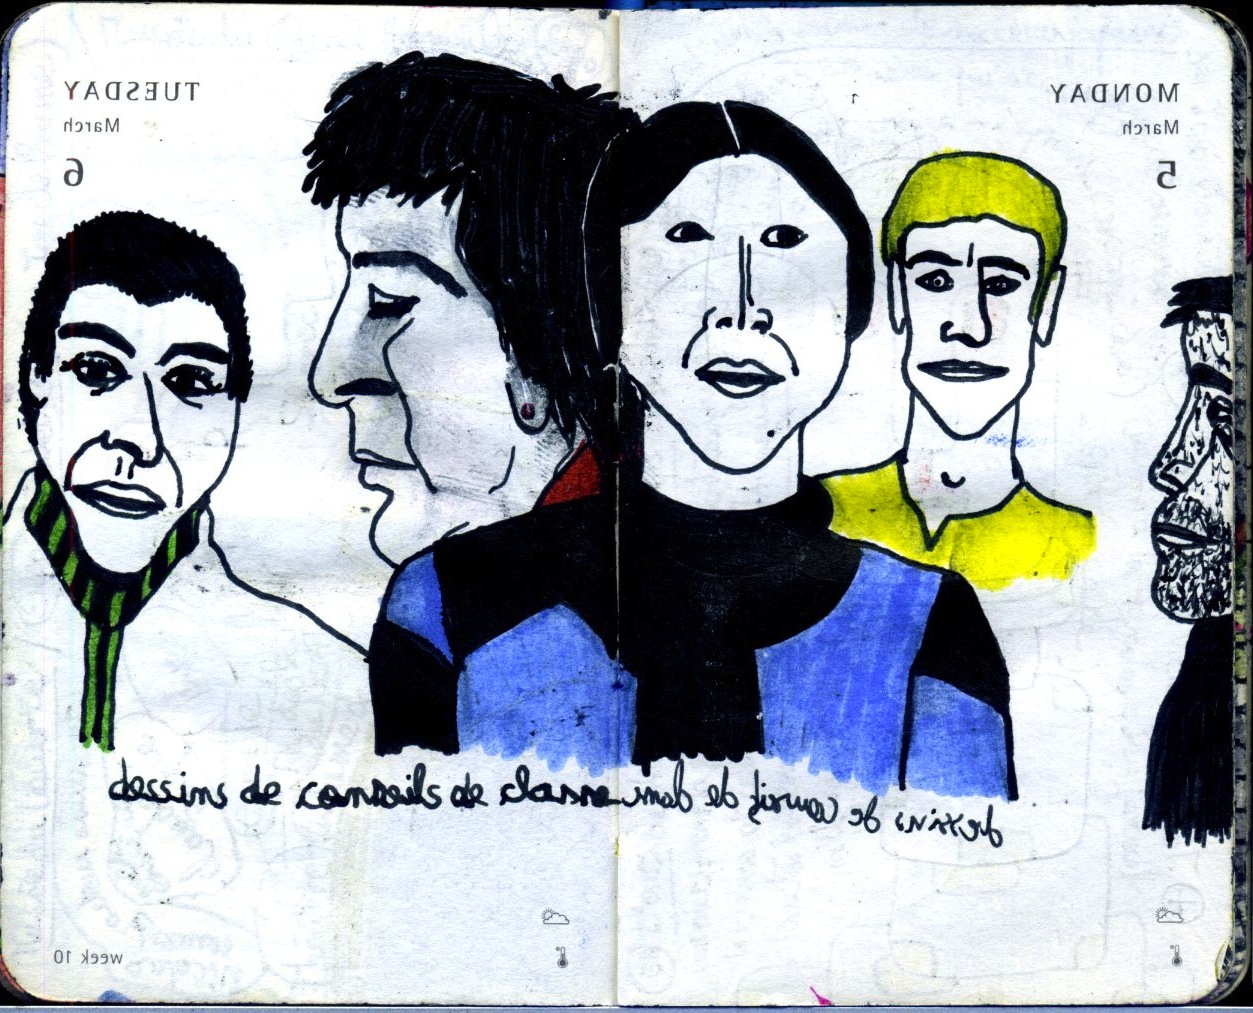 TUESDAY
March
6
MONDAY
March
5
dessins de conseils de classe
dessins de conseils de
week 10